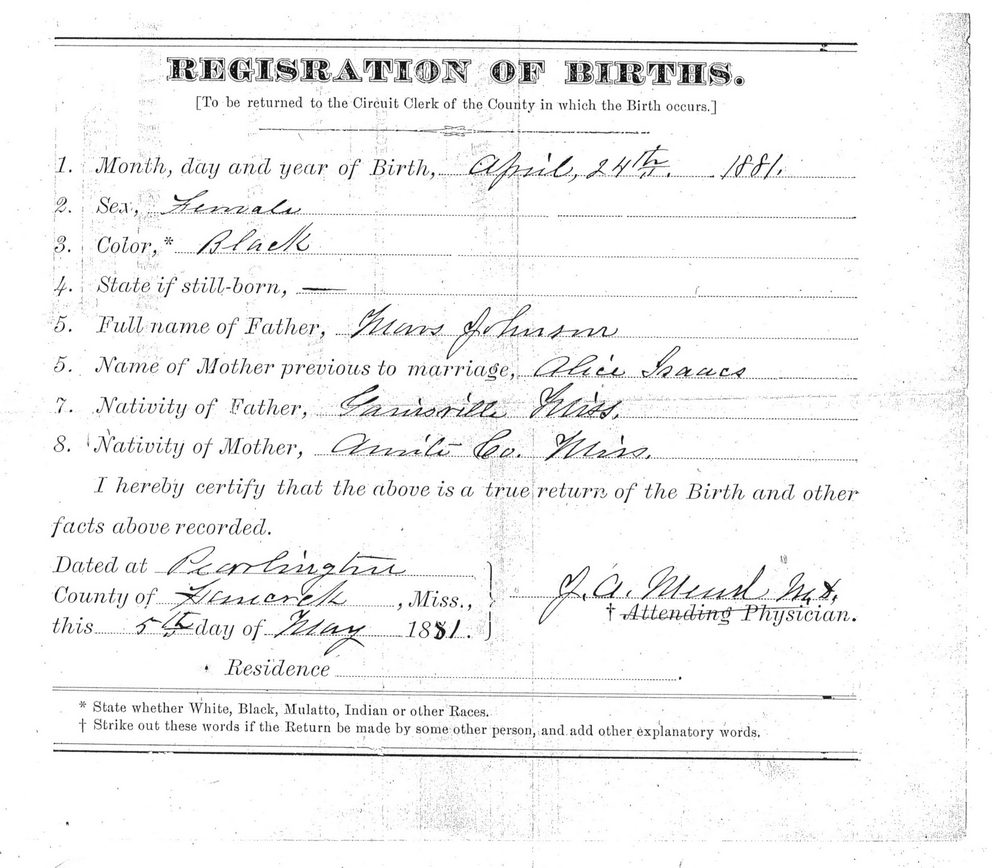 REGISRATION OF BIRTHS.
[To be returned to the Circuit Clerk of the County in which the Birth occurs.]
1. Month, day and year of Birth, April, 24th. 1881.
2. Sex, Female
3. Color,* Black
4. State if still-born, —
5. Full name of Father, Johnson
5. Name of Mother previous to marriage, Alice Isaacs
7. Nativity of Father, Gainsville Miss.
8. Nativity of Mother, Amite Co. Miss.
I hereby certify that the above is a true return of the Birth and other
facts above recorded.
Dated at Pearlington
County of Hancock, Miss.,
J. A. Mead M.D.
this 5th day of May 1881.
† Attending Physician.
Residence
* State whether White, Black, Mulatto, Indian or other Races.
† Strike out these words if the Return be made by some other person, and add other explanatory words.